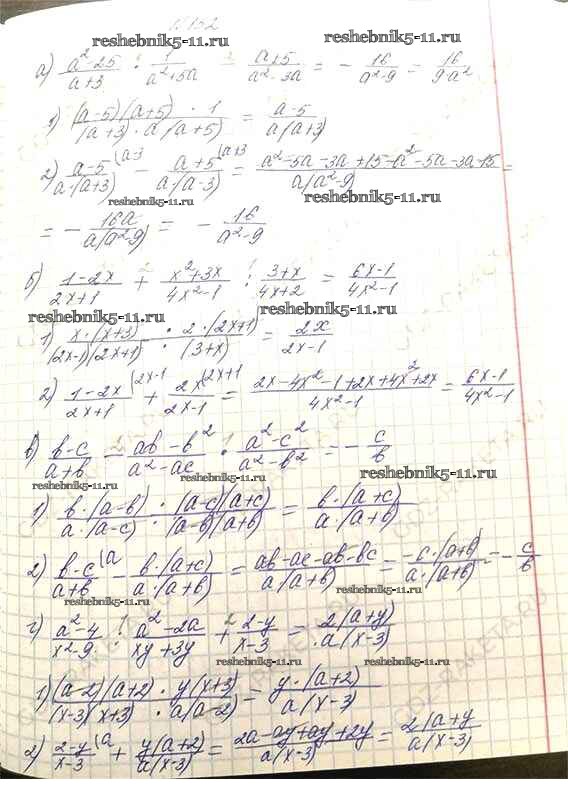 N 152
reshebnik5-11.ru
а) (a²-25)/(a+3) · 1/(a²+5a) - (a+5)/(a²-3a) = - 16/(a²-9) = 16/(9-a²)
1) ((a-5)(a+5) · 1)/((a+3) · a(a+5)) = (a-5)/(a(a+3))
2) (a-5)/(a·(a+3)) (a-3 - (a+5)/(a·(a-3)) (a+3 = (a²-5a-3a+15-a²-5a-3a-15)/(a(a²-9)) =
reshebnik5-11.ru reshebnik5-11.ru
= - 16a/(a(a²-9)) = - 16/(a²-9)
reshebnik5-11.ru
б) (1-2x)/(2x+1) + (x²+3x)/(4x²-1) : (3+x)/(4x+2) = (6x-1)/(4x²-1)
reshebnik5-11.ru reshebnik5-11.ru
1) (x·(x+3) · 2·(2x+1))/((2x-1)(2x+1) · (3+x)) = 2x/(2x-1)
2) (1-2x)/(2x+1) (2x-1 + 2x/(2x-1) (2x+1 = (2x-4x²-1+2x+4x²+2x)/(4x²-1) = (6x-1)/(4x²-1)
reshebnik5-11.ru
в) (b-c)/(a+b) - (ab-b²)/(a²-ac) · (a²-c²)/(a²-b²) = - c/b
reshebnik5-11.ru
1) (b·(a-b) · (a-c)(a+c))/(a·(a-c) · (a-b)(a+b)) = (b·(a+c))/(a·(a+b))
2) (b-c)/(a+b) (a - (b·(a+c))/(a·(a+b)) = (ab-ac-ab-bc)/(a(a+b)) = (-c·(a+b))/(a·(a+b)) = - c/b
reshebnik5-11.ru
г) (a²-4)/(x²-9) : (a²-2a)/(xy+3y) + (2-y)/(x-3) = 2(a+y)/(a(x-3))
reshebnik5-11.ru
1) ((a-2)(a+2) · y(x+3))/((x-3)(x+3) · a(a-2)) = (y·(a+2))/(a(x-3))
2) (2-y)/(x-3) (a + y(a+2)/(a(x-3)) = (2a-ay+ay+2y)/(a(x-3)) = 2(a+y)/(a(x-3))